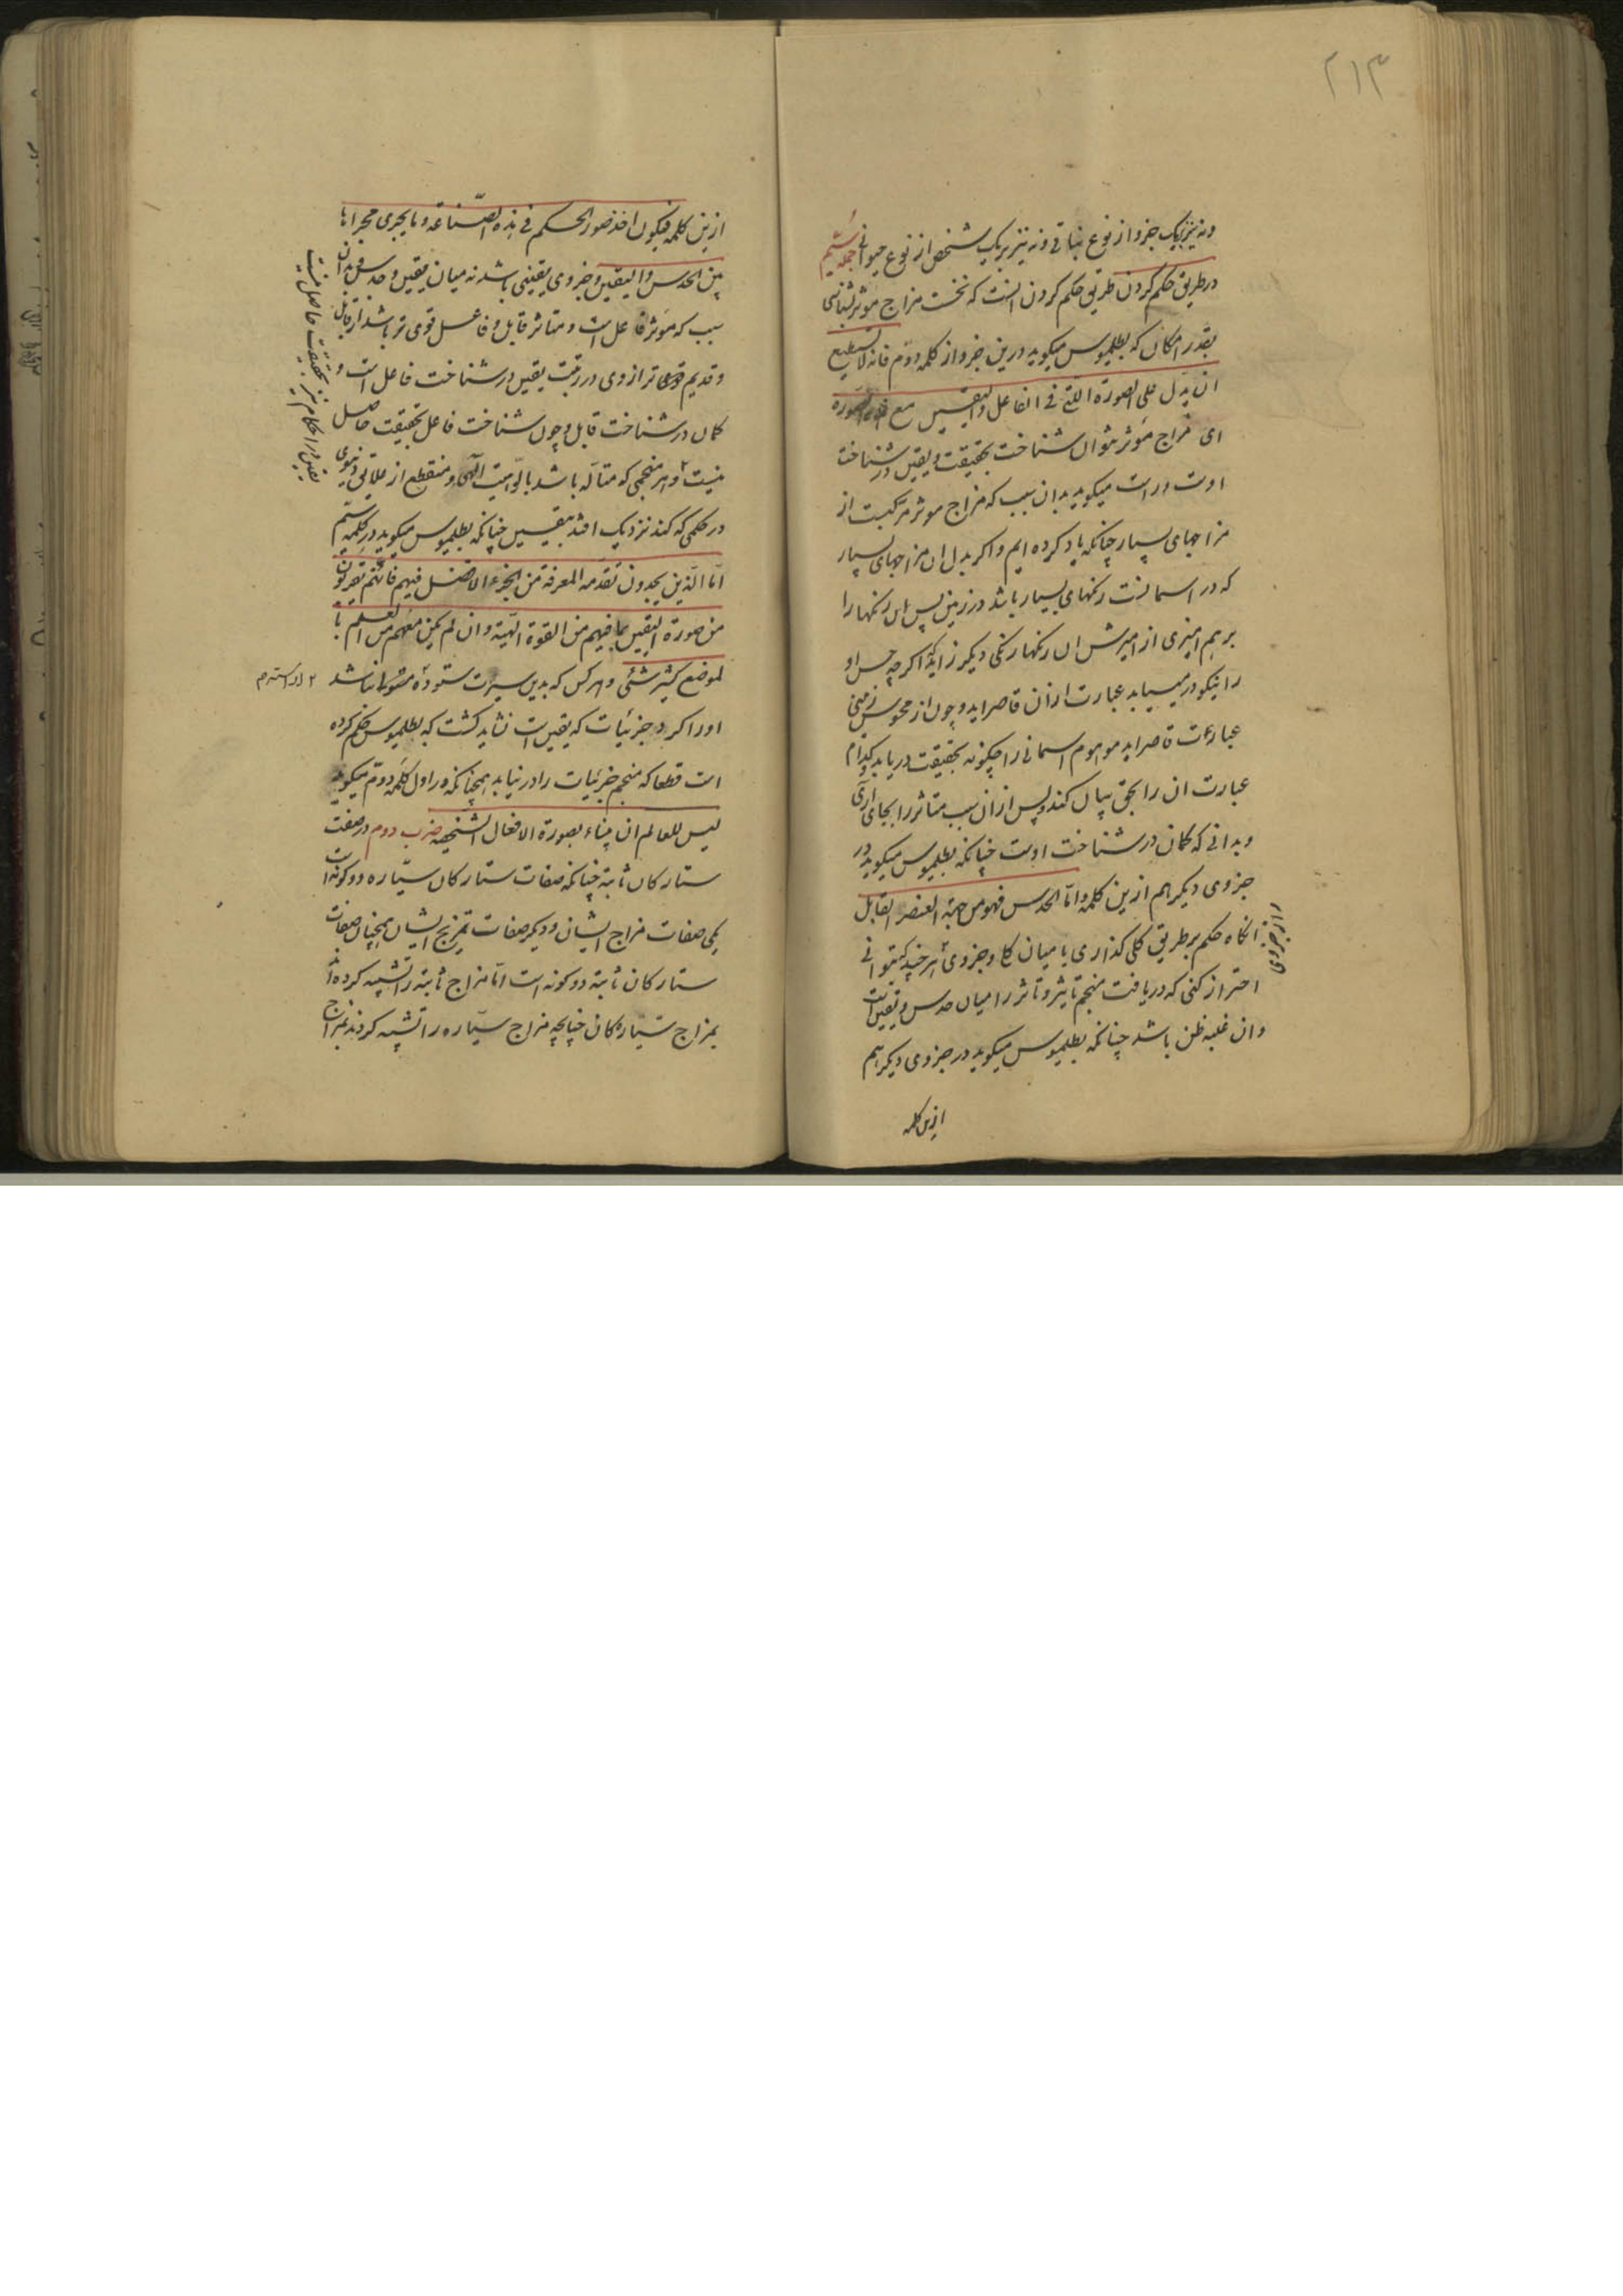 ۲۱۳
ونه نیز بیک جزو از نوع نباتی ونه نیز بریک شخص از نوع حیوانی جمله ششم
در طریق حکم کردن طریق حکم کردن انست که نخست مزاج موثر بشناسی
بقدر امکان که بطلمیوس میکوید درین جزو از کلمه دوم فانه لا یستطیع
ان یدل علی الصورة التی فی الفاعل والیقین مع هذه الصورة
ای مزاج موثر نتوان شناخت بحقیقت ویقین در شناخت
اوست وراست میکوید بدان سبب که مزاج موثر مرکبست از
مزاجهای بسیار چنانکه یاد کرده ایم واکر بدل ان مزاجهای بسیار
که در اسمانست رنکهای بسیار باشد در زمین پس ان رنکها را
برهم امیزی از امیزش ان رنکها رنکی دیکر زاید که اکرچه حس او
را نیکو در مییابد عبارت از ان قاصر اید وچون از محسوس زمینی
عبارت قاصر اید موهوم اسمانی را چکونه بحقیقت دریابد بکدام
عبارت ان را بحق بیان کند وپس از ان سبب متاثر را بجای اری
وبدانی که کمان در شناخت اوست چنانکه بطلمیوس میکوید در
جزوی دیکر هم ازین کلمه واما الحدس فهو من جهة العنصر القابل
انکاه حکم بر طریق کلی کذاری یا میان کل وجزوی هر چند که بتوانی
احتراز کنی که دریافت منجم تاثیر وتاثر را میان حدس ویقین است
وان غلبه ظن باشد چنانکه بطلمیوس میکوید در جزوی دیکر هم
ازین کلمه
ازین کلمه فیکون اخذ صور الحکم فی هذه الصناعة وما یجری مجراها
بین الحدس والیقین وجزوی یقینی باشد نه میان یقین وحدس بدان
سبب که موثر فاعل است ومتاثر قابل وفاعل قوی تر باشد از قابل
وقدیم تر از وی در رتبت یقین در شناخت فاعل است و
کمان در شناخت قابل وچون شناخت فاعل بحقیقت حاصل
نیست وهر منجمی که متاله باشد بالوهیت الهی ومنقطع از علایق دنیوی
یقین در احکام نیز بحقیقت حاصل نیست
در حکمی که کند نزدیک افتد بیقین چنانکه بطلمیوس میکوید در کلمه ششم
اما الذین یجدون تقدمة المعرفة من الجزء الافضل فیهم فانهم یقربون
من صورة الیقین بما فیهم من القوة الهیة وان لم یکن معهم من العلم با
لموضع کثیر شئی وهر کس که بدین سیرت ستوده نباشد
اورا کرد جزئیات که یقین است نشاید کشت که بطلمیوس حکم کرده
است قطعا که منجم جزئیات را در نیابد همچنانکه در اول کلمه دوم میکوید
لیس للعالم ان ینباء بصورة الافعال الشخصیه ضرب دوم در صفت
ستارکان ثابته چنانکه صفات ستارکان سیاره دو کونه است
یکی صفات مزاج ایشان ودیکر صفات تمزیج ایشان همچنان صفات
ستارکان ثابته دو کونه است اما مزاج ثابته را تشبیه کرده اند
بمزاج سیارکان چنانچه مزاج سیاره را تشبیه کردند بمزاج